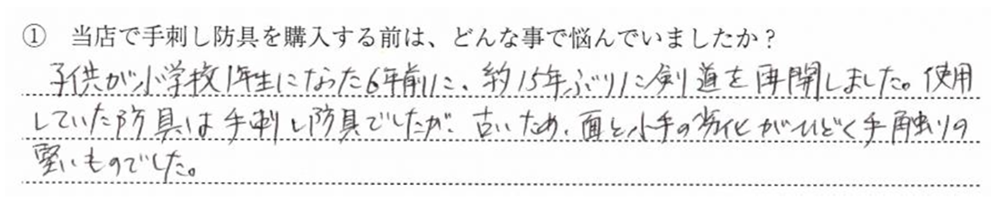 ① 当店で手刺し防具を購入する前は、どんな事で悩んでいましたか？
子供が小学校1年生になった6年前に、約15年ぶりに剣道を再開しました。使用
していた防具は手刺し防具でしたが、古いため、面と小手の劣化がひどく手触りの
堅いものでした。